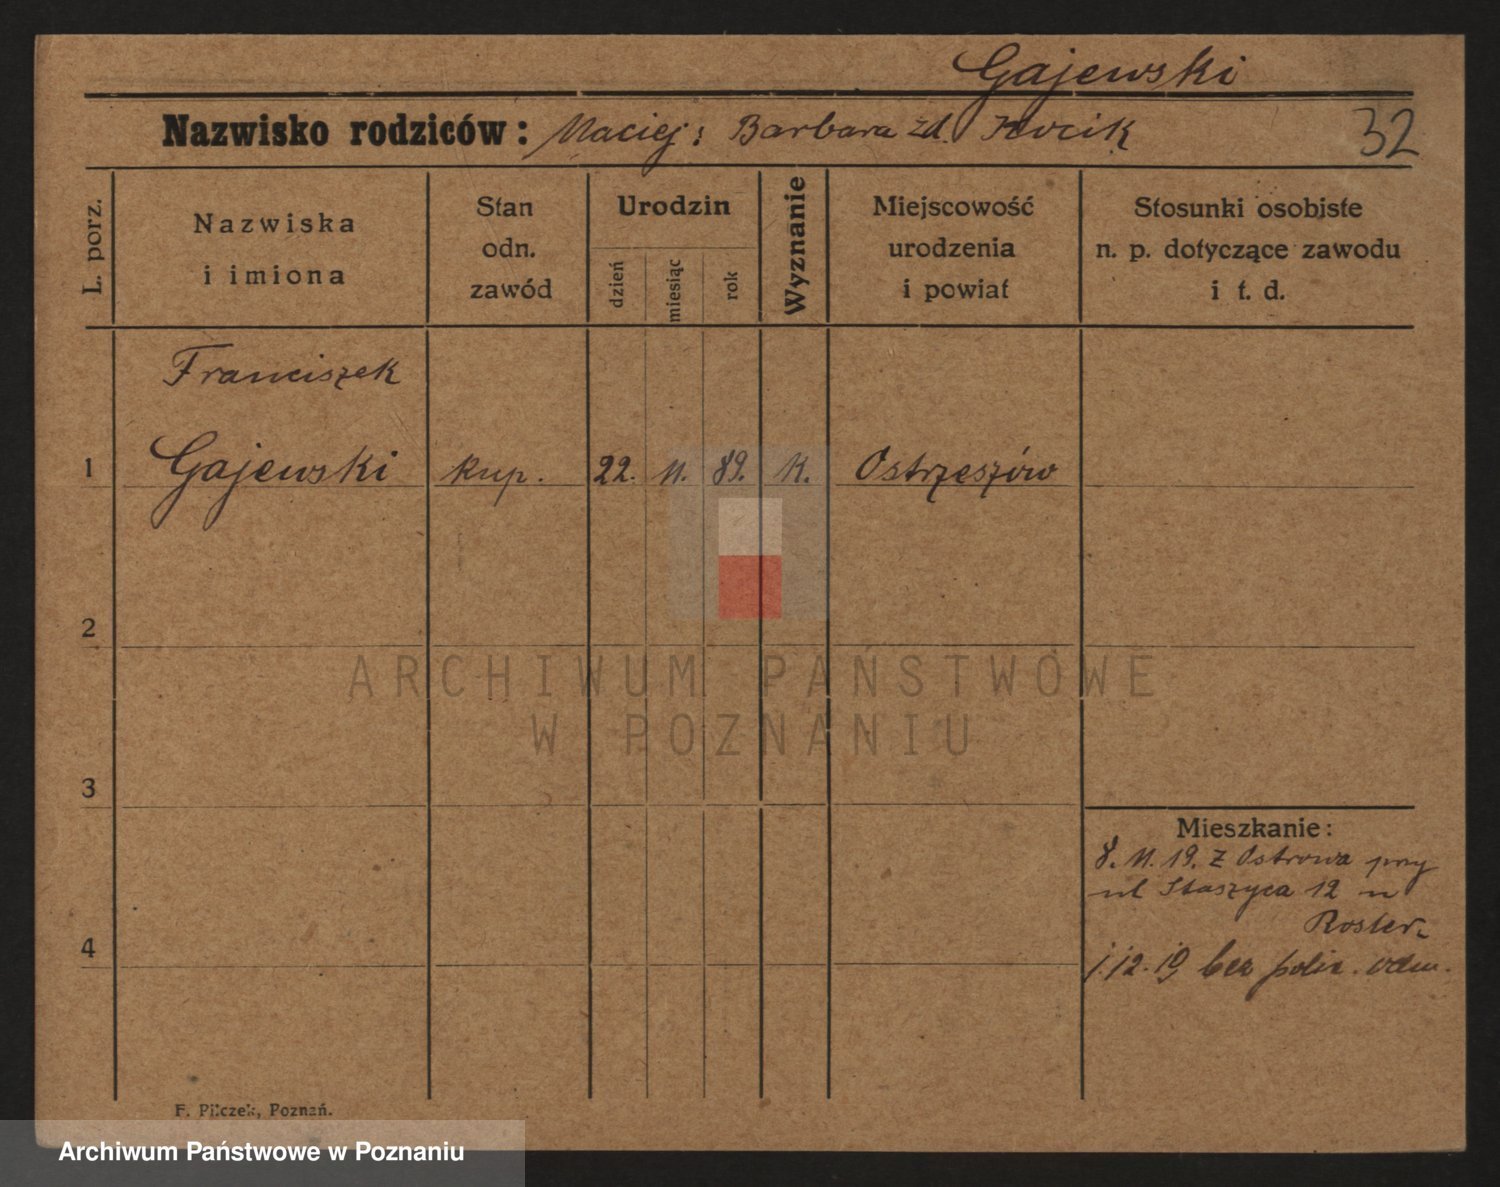 Gajewski
Nazwisko rodziców: Maciej; Barbara zd.
32
L. porz.
Nazwiska
i imiona
Stan
odn.
zawód
Urodzin
dzień
miesiąc
rok
Wyznanie
Miejscowość
urodzenia
i powiat
Stosunki osobiste
n. p. dotyczące zawodu
i t. d.
Franciszek
1 Gajewski kup. 22. 11. 89. K. Ostrzeszów
2
ARCHIWUM PAŃSTWOWE
W POZNANIU
3
Mieszkanie:
8. 11. 19. z Ostrowa przy
ul Staszyca 12 u
4
1.12.19 bez polic. odm.
F. Pilczek, Poznań.
Archiwum Państwowe w Poznaniu